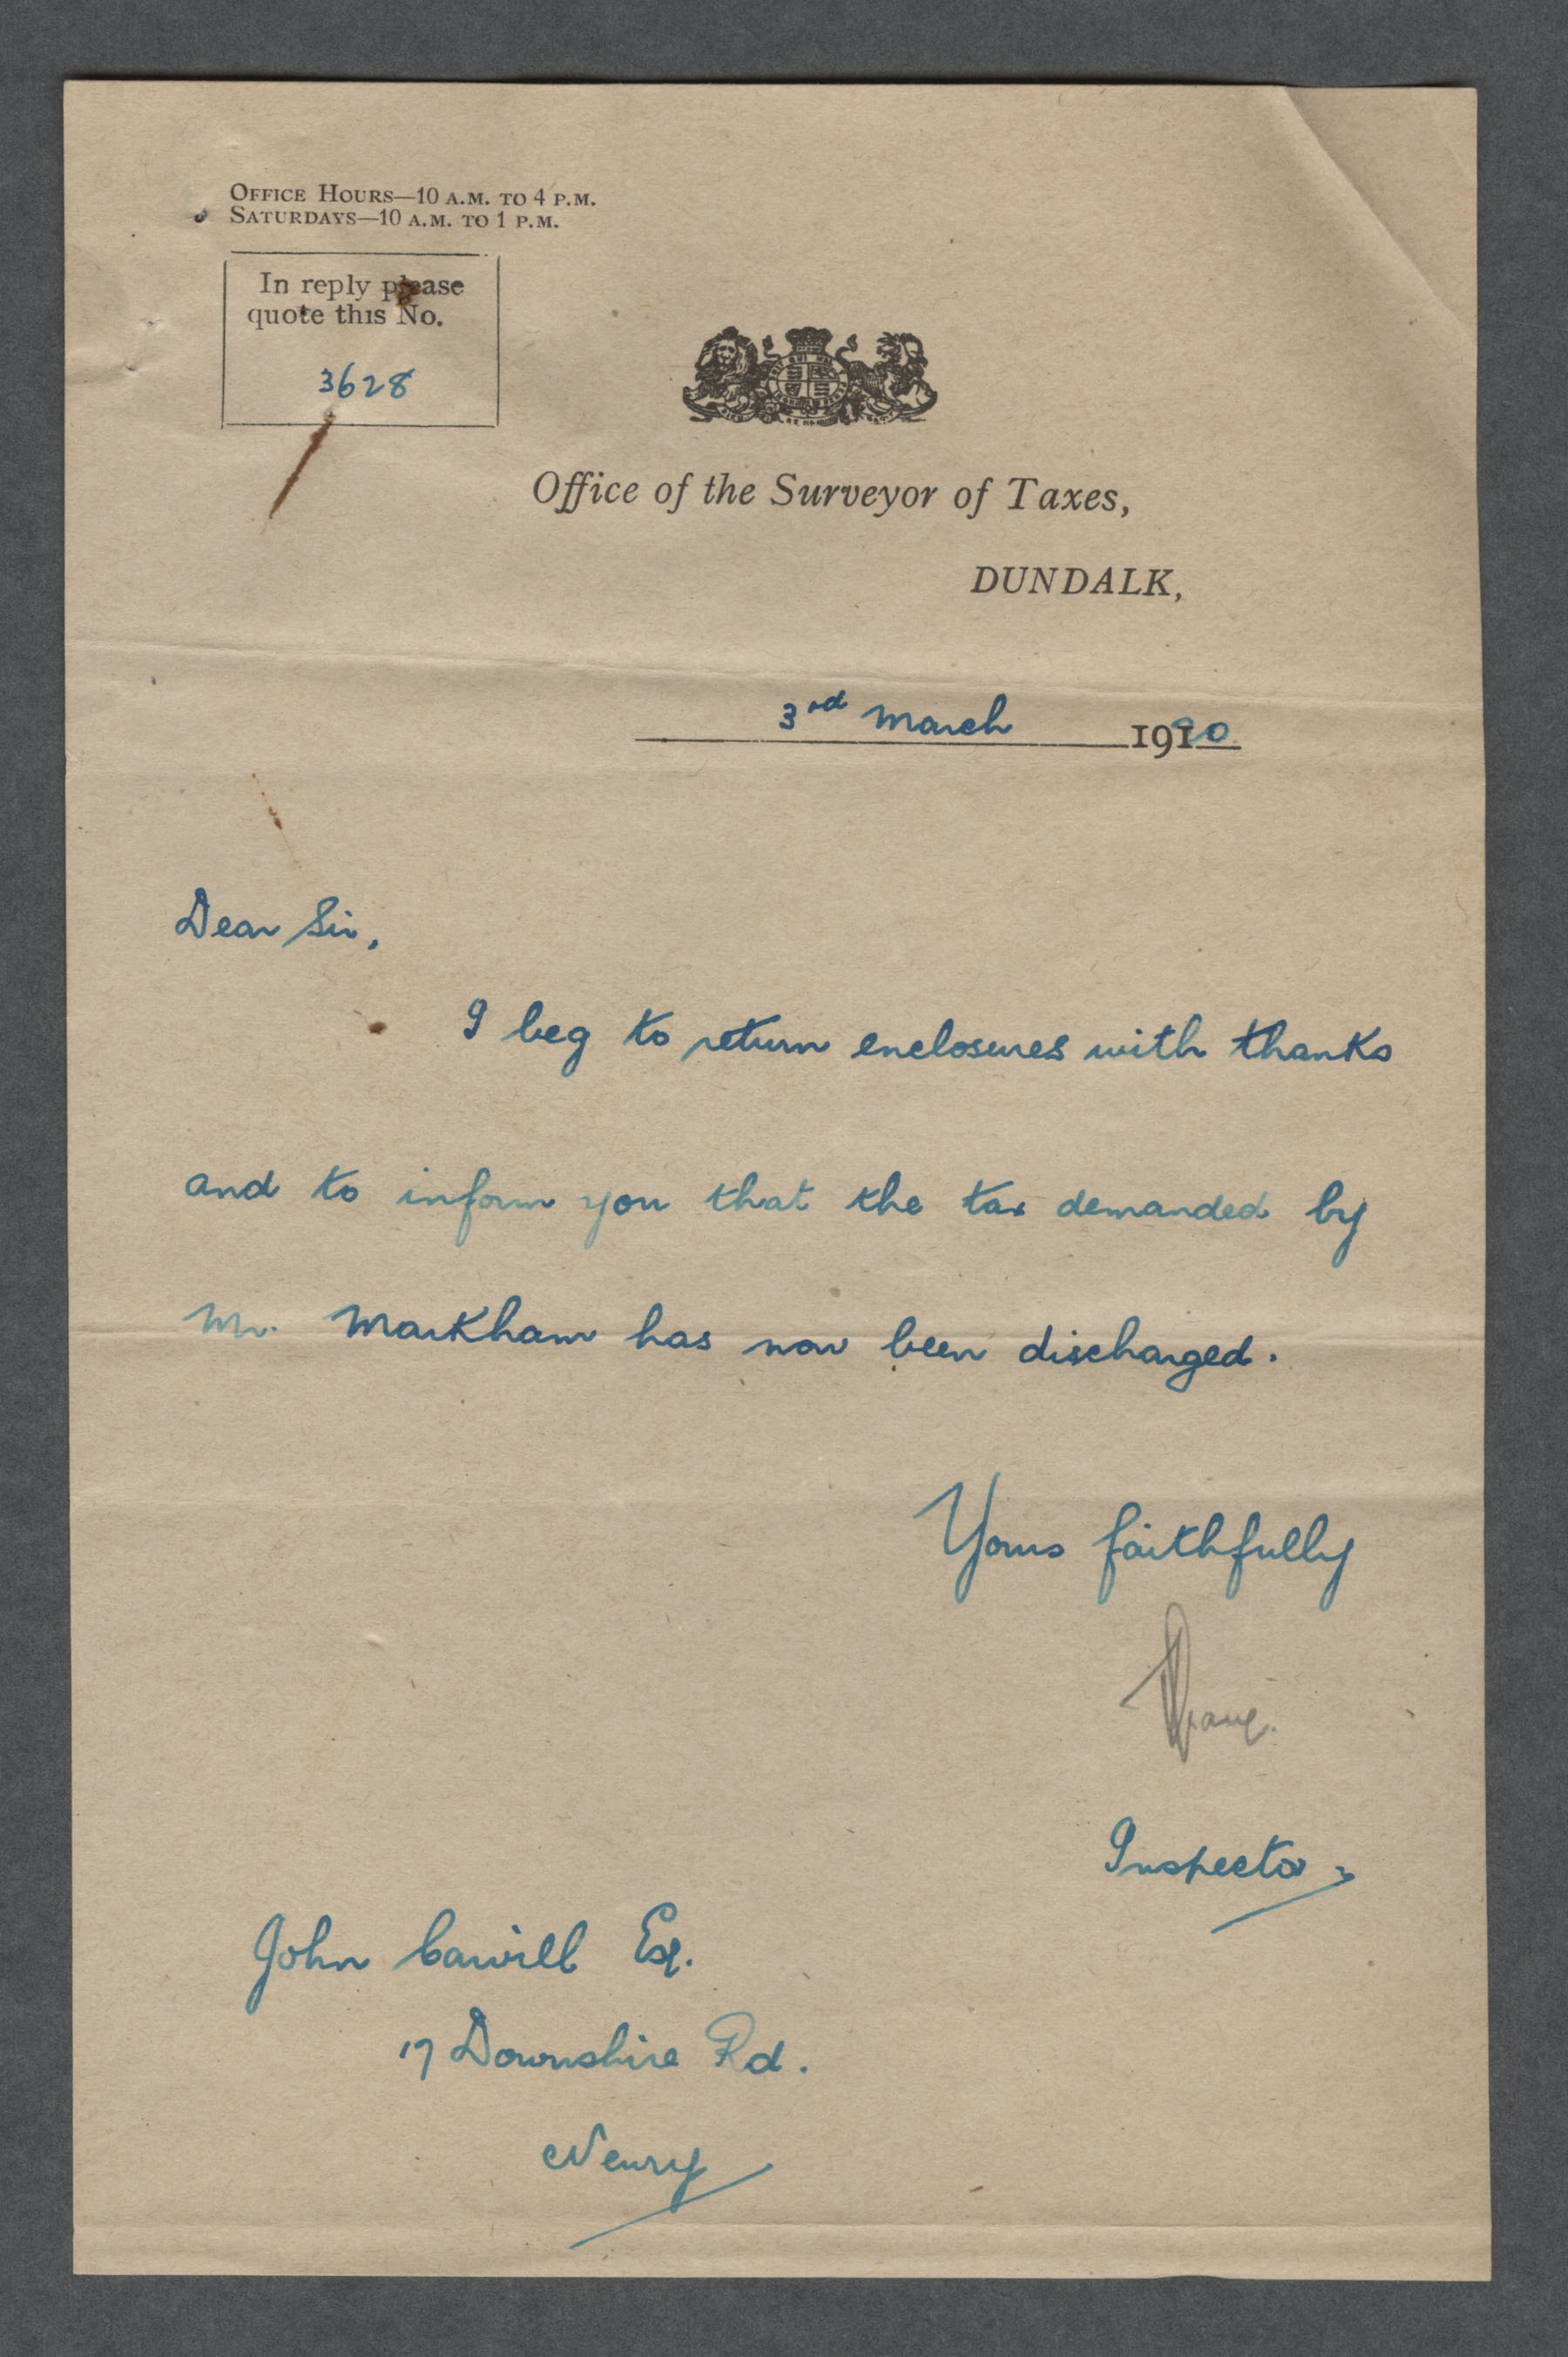 OFFICE HOURS—10 A.M. TO 4 P.M.
SATURDAYS—10 A.M. TO 1 P.M.
In reply please
quote this No.
3628
Office of the Surveyor of Taxes,
DUNDALK,
3rd March 1920
Dear Sir,
I beg to return enclosures with thanks
and to inform you that the tax demanded by
Mr. Markham has now been discharged.
Yours faithfully
Inspector
John Cavill Esq.
17 Downshire Rd.
Newry